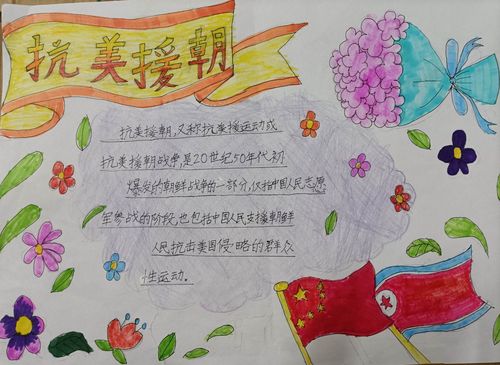 抗美援朝
抗美援朝,又称抗美援运动或
抗美援朝战争,是20世纪50年代初
爆发的朝鲜战争的一部分,仅指中国人民志愿
军参战的阶段,也包括中国人民支援朝鲜
人民抗击美国侵略的群众
性运动。